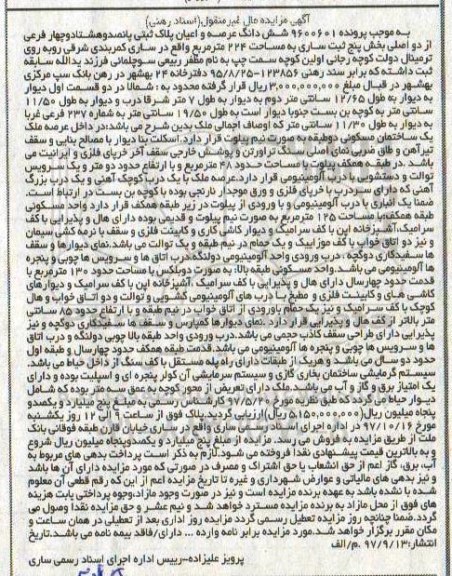 آگهی مزایده مال غیرمنقول(اسناد رهنی)
به موجب پرونده ۹۶۰۰۶۰۱ شش دانگ عرصه و اعیان پلاک ثبتی پانصدوهشتادوچهار فرعی
از دو اصلی بخش پنج ثبت ساری به مساحت ۲۲۴ مترمربع واقع در ساری کمربندی شرقی روبه روی
ترمینال دولت کوچه رجائی اولین کوچه سمت چپ به نام مظفر ربیعی سوچلمائی فرزند یدالله سابقه
ثبت داشته که برابر سند رهنی ۱۲۳۸۵۶-۹۵/۸/۲۵ دفترخانه ۲۴ بهشهر در رهن بانک سپه مرکزی
بهشهر در قبال مبلغ ۳,۰۰۰,۰۰۰,۰۰۰ ریال قرار گرفته محدود به : شمالا در دو قسمت اول دیوار
به دیوار به طول ۱۲/۶۵ سانتی متر دوم به دیوار به طول ۷ متر شرقا درب و دیوار به طول ۱۱/۵۰
سانتی متر به کوچه بن بست جنوبا دیوار است به طول ۱۹/۵۰ سانتی متر به شماره ۲۳۷ فرعی غربا
به دیوار به طول ۱۱/۳۰ سانتی متر که اوصاف اجمالی ملک بدین شرح می باشد:در داخل عرصه ملک
یک ساختمان مسکونی دوطبقه بصورت نیم پیلوت قرار دارد.اسکلت بنا دیوار با مصالح بنایی و سقف
تیرآهن و طاق ضربی نمای اصلی سنگ تراورتن و پوشش خارجی سقف آخر خرپای فلزی و ایرانیت می
باشد .در طبقه همکف پیلوت با مساحت حدود ۴۸ مترمربع و با ارتفاع حدود دو متر و یک سرویس
توالت و دستشویی با درب آلومینیومی قرار دارد.عرصه ملک با یک درب کوچک آهنی و یک درب بزرگ
آهنی که دارای سردرب با خرپای فلزی و ورق موجدار نارنجی بوده با کوچه بن بست در ارتباط است.
ضمنا یک انباری با درب آلومینیومی و با ورودی از پیلوت در زیر طبقه همکف قرار دارد واحد مسکونی
طبقه همکف:با مساحت ۱۲۵ مترمربع به صورت نیم پیلوت و قدیمی بوده دارای هال و پذیرایی با کف
سرامیک،آشپزخانه اپن با کف سرامیک و دیوار کاشی کاری و کابینت فلزی و سقف با نرمه کشی سیمان
و نیز دو اتاق خواب با کف موزاییک و یک حمام در نیم طبقه و یک توالت می باشد.نمای دیوارها و سقف
ها سفیدکاری دوگچه ، درب ورودی واحد آلومینیومی دولنگه.درب اتاق ها و سرویس ها چوبی و پنجره
ها آلومینیومی می باشد.واحد مسکونی طبقه بالا: به صورت دوبلکس با مساحت حدود ۱۳۰ مترمربع با
قدمت حدود چهارسال دارای هال و پذیرایی با کف سرامیک ،آشپزخانه اپن با کف سرامیک و دیوارهای
کاشی های و کابینت فلزی و مطبخ با درب های آلومینیومی کشویی و توالت و دو اتاق خواب و هال
کوچک با کف سرامیک و نیز یک حمام باورودی از اتاق خواب در نیم طبقه و با ارتفاع حدود ۸۵ سانتی
متر بالاتر از کف هال و پذیرایی قرار دارد .نمای دیوارها کمپارس و سقف ها سفیدکاری دوگچه و نیز
پذیرایی دارای طراحی سقف کاذب حجمی می باشد.درب ورودی واحد طبقه بالا چوبی دولنگه و درب اتاق
ها و سرویس ها چوبی و پنجره ها آلومینیومی می باشد.قدمت طبقه همکف حدود چهارسال و طبقه اول
حدود دو سال می باشد و هریک از طبقات دارای راه پله مستقل با کف سنگ از داخل حیاط می باشد.
سیستم گرمایشی ساختمان بخاری گازی و سیستم سرمایشی آن کولر پنجره ای و اسپیلت بوده و دارای
یک امتیاز برق و گاز و آب می باشد.ملک دارای تعریض از محور کوچه به عمق سه متر بوده که شامل
دیوار حیاط می گردد که طبق نظریه مورخ ۹۷/۵/۲۰ کارشناس رسمی به مبلغ پنج میلیارد و یکصدو
پنجاه میلیون ریال(۵,۱۵۰,۰۰۰,۰۰۰ریال)ارزیابی گردید.پلاک فوق از ساعت ۹ الی ۱۲ روز یکشنبه
مورخ ۹۷/۱۰/۱۶ در اداره اجرای اسناد رسمی ساری واقع در ساری خیابان قارن طبقه فوقانی بانک
ملت از طریق مزایده به فروش می رسد. مزایده از مبلغ پنج میلیارد و یکصدوپنجاه میلیون ریال شروع
و به بالاترین قیمت پیشنهادی نقدا فروخته می شود.لازم به ذکر است پرداخت بدهی های مربوط به
آب، برق، گاز اعم از حق انشعاب یا حق اشتراک و مصرف در صورتی که مورد مزایده دارای آن ها باشد
و نیز بدهی های مالیاتی و عوارض شهرداری و غیره تا تاریخ مزایده اعم از این که رقم قطعی آن معلوم
شده یا نشده باشد به عهده برنده مزایده است و نیز در صورت وجود مازاد،وجوه پرداختی بابت هزینه
های فوق از محل مازاد به برنده مزایده مسترد خواهد شد و نیم عشر و حق مزایده نقدا وصول می
گردد.ضمنا چنانچه روز مزایده تعطیل رسمی گردد مزایده روز اداری بعد از تعطیلی در همان ساعت و
مکان مقرر برگزار خواهد شد.مورد مزایده برابر نامه وارده ... دارای/فاقد بیمه نامه می باشد.تاریخ
انتشار:۹۷/۹/۱۳ .م/الف
پرویز علیزاده–رییس اداره اجرای اسناد رسمی ساری